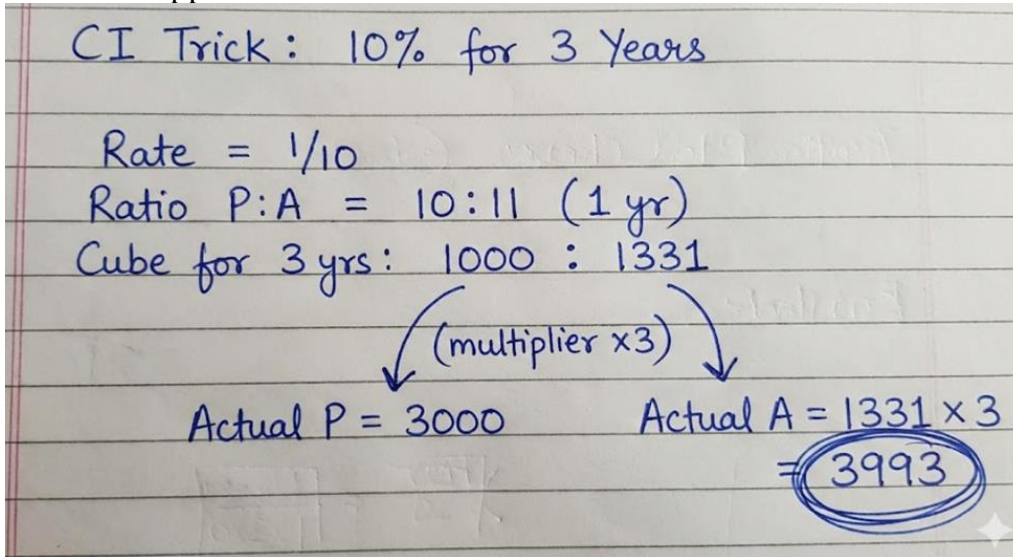 CI Trick: 10% for 3 Years
Rate = 1/10
Ratio P:A = 10:11 (1 yr)
Cube for 3 yrs: 1000 : 1331
(multiplier x3)
Actual P = 3000 Actual A = 1331 x 3
= 3993